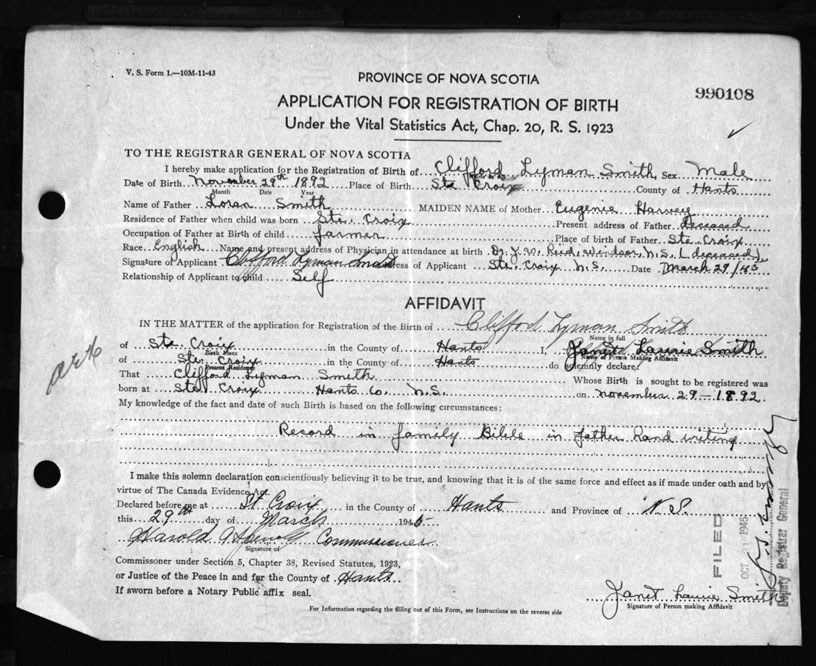 V. S. Form 1.—10M-11-43
PROVINCE OF NOVA SCOTIA
990108
APPLICATION FOR REGISTRATION OF BIRTH
Under the Vital Statistics Act, Chap. 20, R. S. 1923
TO THE REGISTRAR GENERAL OF NOVA SCOTIA
I hereby make application for the Registration of Birth of Clifford Lyman Smith Sex Male
Date of Birth November 29th 1892 Place of Birth Ste Croix County of Hants
Month Date Year
Name of Father Loran Smith MAIDEN NAME of Mother Eugenie Harvey
Residence of Father when child was born Ste. Croix Present address of Father deceased
Occupation of Father at Birth of child farmer Place of birth of Father Ste. Croix
Race English Name and present address of Physician in attendance at birth Dr. J. W. Reid, Windsor, N.S. (deceased)
Signature of Applicant Clifford Lyman Smith Address of Applicant Ste. Croix N.S. Date March 29/45
Relationship of Applicant to child Self
AFFIDAVIT
IN THE MATTER of the application for Registration of the Birth of Clifford Lyman Smith
Name in full
of Ste. Croix in the County of Hants I, Janet Laurie Smith
Birth Place Name of Person Making Affidavit
of Ste. Croix in the County of Hants do solemnly declare:
Present Residence
That Clifford Lyman Smith Whose Birth is sought to be registered was
born at Ste. Croix Hants Co. N.S. on November 29-1892
My knowledge of the fact and date of such Birth is based on the following circumstances:
Record in family Bible in father hand writing
I make this solemn declaration conscientiously believing it to be true, and knowing that it is of the same force and effect as if made under oath and by
virtue of The Canada Evidence Act.
Declared before me at St. Croix in the County of Hants and Province of N.S.
this 29th day of March 1945
Harold Commissioner
Signature of
Commissioner under Section 5, Chapter 38, Revised Statutes, 1923,
or Justice of the Peace in and for the County of Hants
If sworn before a Notary Public affix seal.
Janet Laurie Smith
Signature of Person making Affidavit
For Information regarding the filling out of this Form, see Instructions on the reverse side
FILED
OCT 1945
Deputy Registrar General